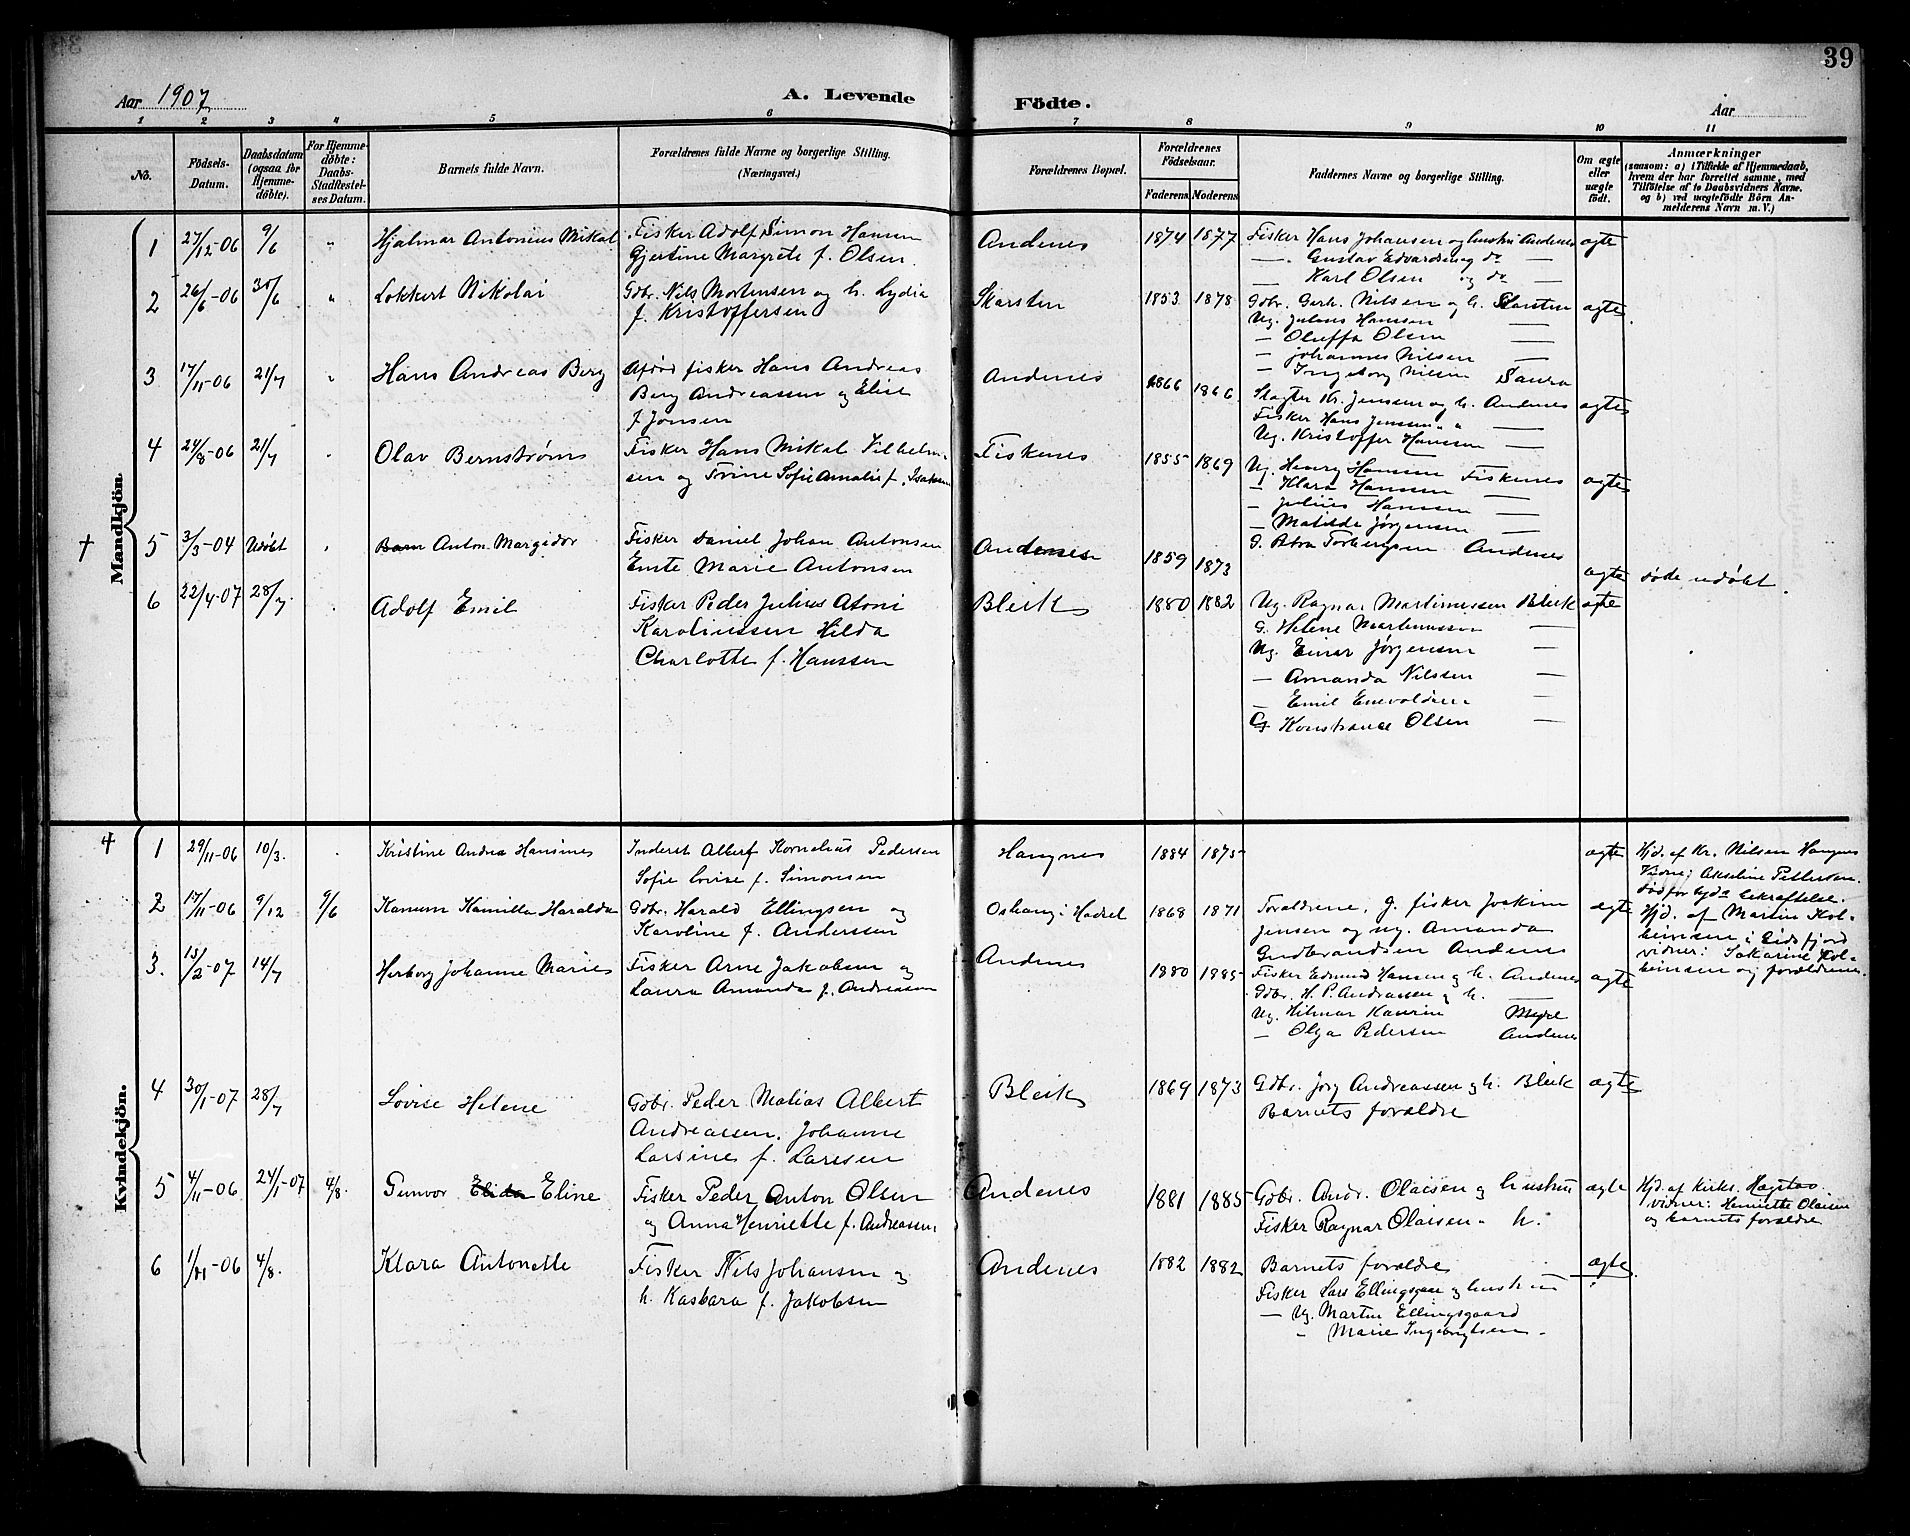 39
Aar 1907
A. Levende
Födte.
Aar
1 2 3 4 5 6 7 8 9 10 11
No.
Födsels-Datum.
Daabsdatum (ogsaa for Hjemme-döbte).
For Hjemme-döbte: Daabs-Stadfæstel-ses Datum.
Barnets fulde Navn.
Forældrenes fulde Navne og borgerlige Stilling. (Næringsvei.)
Forældrenes Bopæl.
Forældrenes Födselsaar.
Faderens Moderens
Faddernes Navne og borgerlige Stilling.
Om ægte eller uægte födt.
Anmærkninger
(saasom: a) i Tilfælde af Hjemmedaab, hvem der har forrettet samme, med Tilföielse af to Daabsvidners Navne. og b) ved uægtefödte Börn Anmelderens Navn m. V.)
Mandkjön.
1 27/12-06 9/6 " Hjalmar Antonius Mikal
Fisker Adolf Simon Hansen
Gjertine Margrete f. Olsen.
Andenes 1874 1877
Fisker Hans Johansen og hustru Andenes ægte
— Gustav Edvardsen og do —
— Karl Olsen og do —
2 26/6-06 30/6 " Lokkert Nikolai
Gdbr. Nils Mortensen og h. Lydia
f. Kristoffersen
Skarsten 1853 1878
Gdbr. Gerh. Nilsen og h. Skarsten ægte.
Ug. Julius Hansen —
— Oluffa Olsen —
— Johannes Nilsen —
— Ingeborg Nilsen Saura
3 17/11-06 21/7 " Hans Andreas Berg
Afdød fisker Hans Andreas
Berg Andreassen og Elise
f. Jonsen
Andenes 1866 1866
Slagter Kr. Jenssen og h. Andenes ægte
Fisker Hans Jenssen " " —
Ug. Kristoffer Hanssen —
4 24/8-06 21/7 " Olav Bernstrøm
Fisker Hans Mikal Vilhelm-
sen og Trine Sofie Amalie f. Isaksen
Fiskenes 1855 1869
Ug. Henry Hansen Fiskenes ægte
— Klara Hanssen —
— Julius Hanssen —
— Matilde Jørgensen —
G. Petra Torbergsen Andenes
† 5 3/3-04 Udøbt " Anton Margido
Fisker Daniel Johan Antonsen
Emte Marie Antonsen
Andenes 1859 1873
ægte døde udøbt.
6 22/4-07 28/7 " Adolf Emil
Fisker Peder Julius Atoni
Karoliussen Hilda
Charlotte f. Hanssen
Bleik 1880 1882
Ug. Ragnar Martinussen Bleik ægte
G. Helene Martinussen —
Ug. Einar Jørgensen —
— Amanda Nilssen —
— Emil Enevoldsen —
G Konstance Olsen —
Kvindekjön.
† 1 29/11-06 10/3. Kristine Andrea Hansines
Inderst Albert Kornelius Pedersen
Sofie Lovise f. Simonsen
Haugnes 1884 1875
ægte
Hjd. af Kr. Nilsen Haugnes
død før bekræftelse.
2 17/11-06 9/12 9/6 Kanum Kamilla Haralda
Gdbr. Harald Ellingsen og
Karoline f. Anderssen
Oshaug i Hadsel 1868 1871
Forældrene, g. fisker Joakim ægte
Jensen og ug. Amanda
Gudbrandsen Andenes
Hjd. af Martin Kol-
beinsen i Eidsfjord
vidner: Sakarine Kol-
beinsen og forældrene.
3. 15/2-07 14/7 Herborg Johanne Marie
Fisker Arne Jakobsen og
Laura Amanda f. Andreassen
Andenes 1880 1885
Fisker Edmund Hansen og h. Andenes ægte
Gdbr. H. P. Andreassen og h. —
Ug. Hilmar Kaurin Myre
— Olga Pedersen Andenes
4 30/1-07 28/7 Lovise Helene
Gdbr. Peder Matias Albert
Andreassen. Johanne
Larsine f. Larssen
Bleik 1869 1873
Gdbr. Jørg Andreassen og h. Bleik ægte
Barnets forældre
5 4/11-06 24/1-07 4/8. Gunvor Elida Eline
Fisker Peder Anton Olsen
og Anna Henriette f. Andreassen
Andenes 1881 1885
Gdbr. Andr. Olaisen og hustru ægte
Fisker Ragnar Olaisen " h.
Hjd. af kirks. Hogstad.
vidner: Henriette Olaisen
og barnets forældre
6 1/11-06 4/8. Klara Antonette
Fisker Nils Johansen og
h. Kasbara f. Jakobsen
Andenes 1882 1882
Barnets forældre ægte.
Fisker Lars Ellingsgaar og hustru
— Ug. Martin Ellingsgaard
" Marie Ingebrigtsen